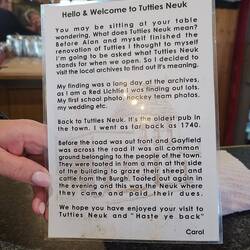 Hello & Welcome to Tutties Neuk
You may be sitting at your table
wondering, What does Tutties Neuk mean?
Before Alan and myself finished the
renovation of Tutties I thought to myself
I'm going to be asked what Tutties Neuk
stands for when we open. So I decided to
visit the local archives to find out it's meaning.
My finding was a long day at the archives,
as I am a Red Lichtie I was finding out lots.
My first school photo, hockey team photos,
my wedding etc.
Back to Tutties Neuk. It's the oldest pub in
the town. I went as far back as 1740.
Before the road was out front and Gayfield
was across the road it was all common
ground belonging to the people of the town.
They were tooted in from a man at the side
of the building to graze their sheep and
cattle from the Burgh. Tooted out again in
the evening and this was the Neuk where
they came and paid their dues.
We hope you have enjoyed your visit to
Tutties Neuk and "Haste ye back"
Carol